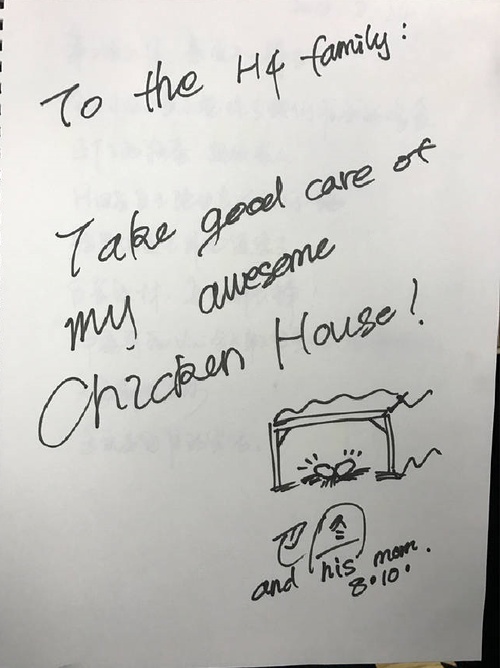 To the H4 family:
Take good care of
my awesome
Chicken House!
and his mom.
8.10.